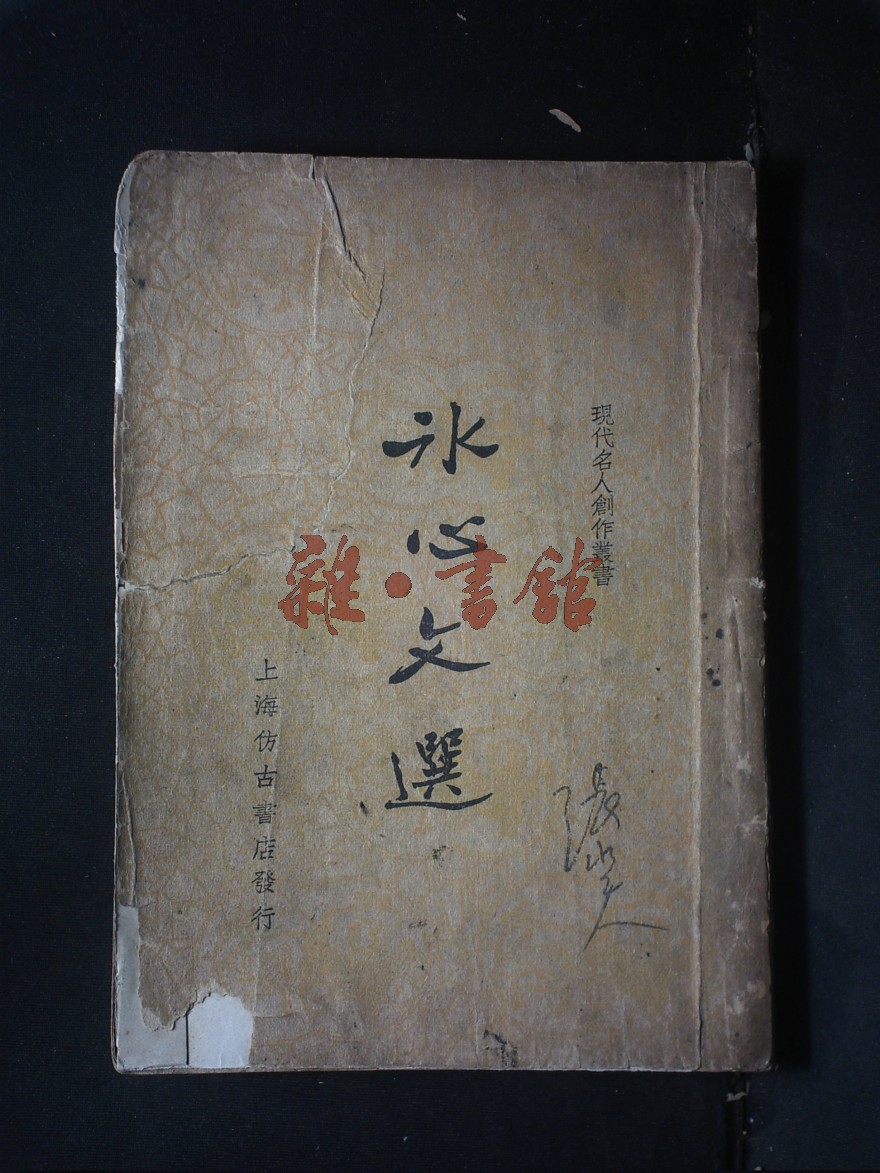 現代名人創作叢書
氷心文選
上海仿古書店發行
雜·書館